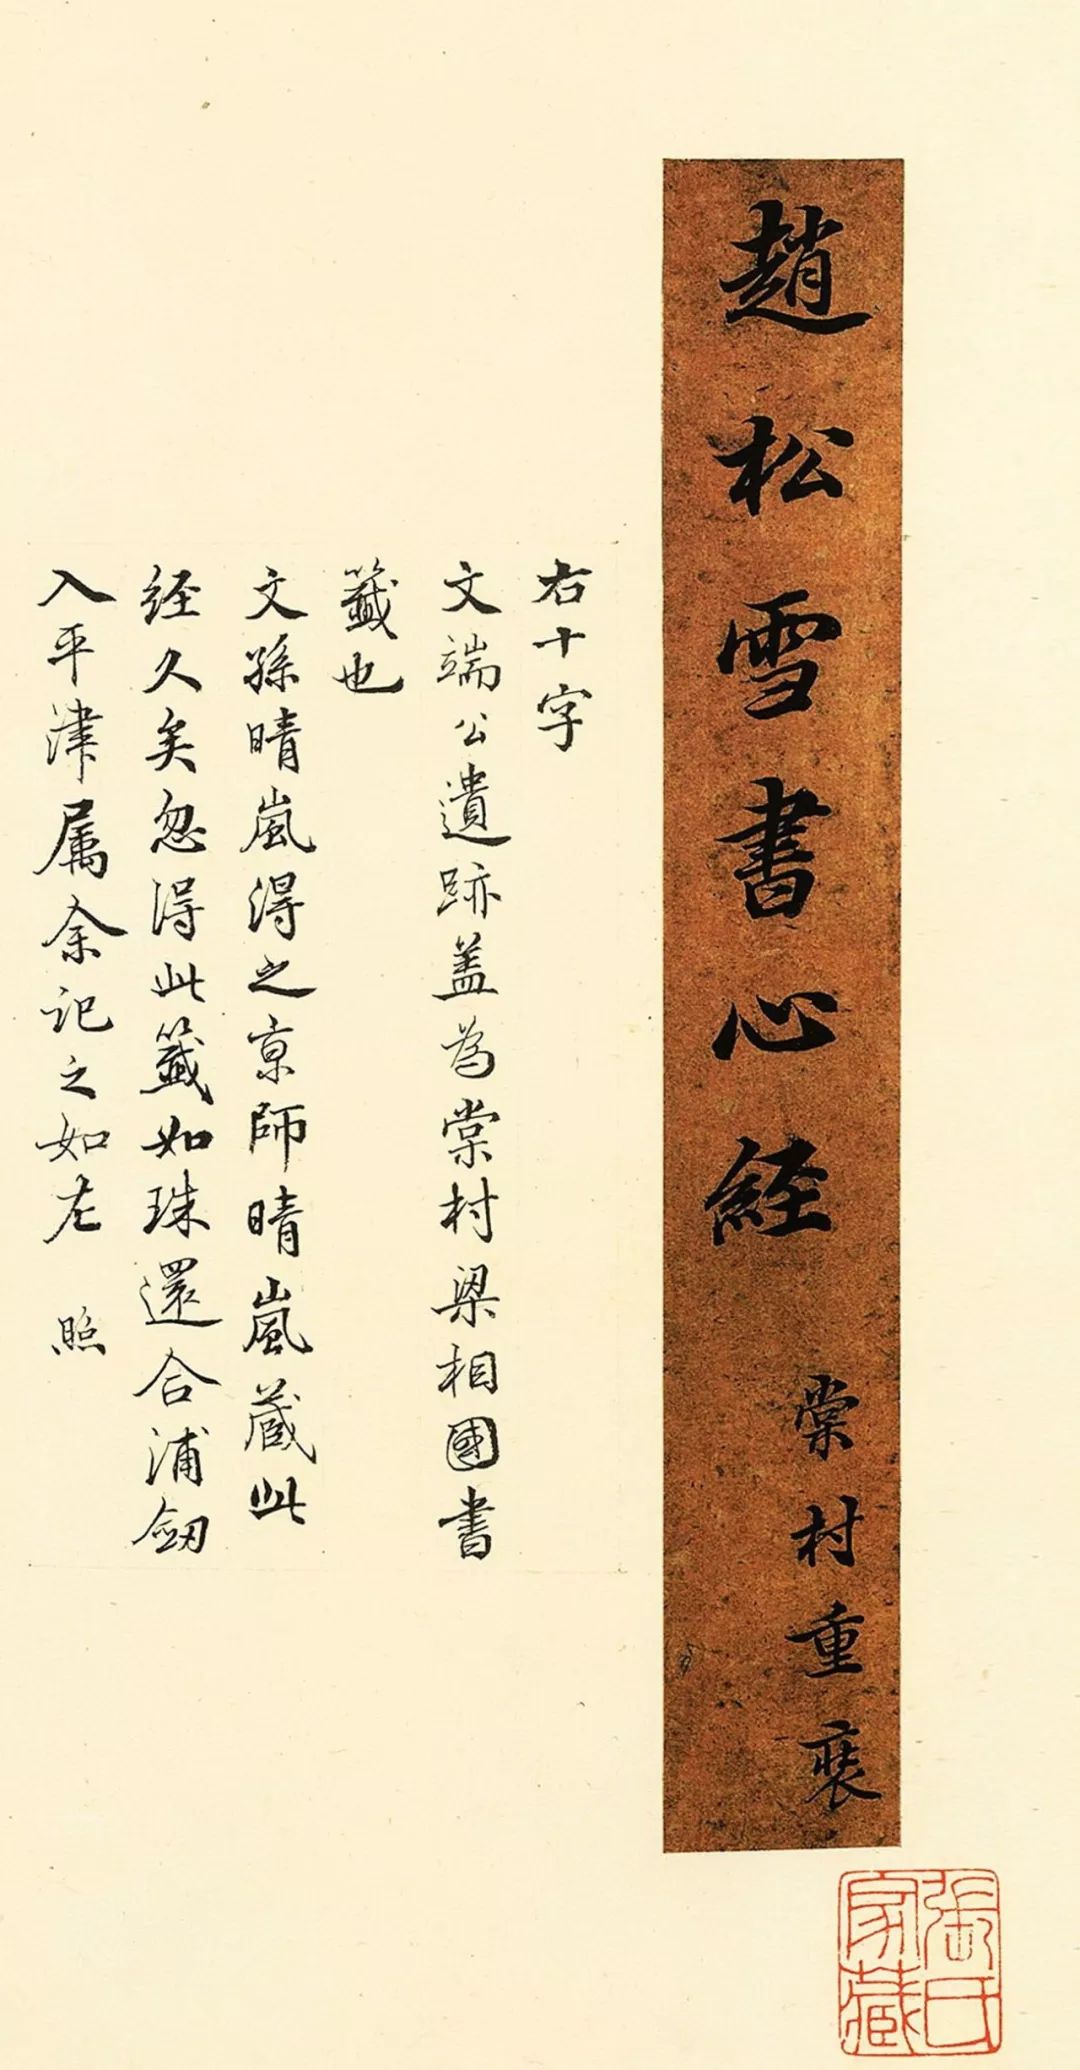 趙松雪書心經
棠村重裝
右十字
文端公遺跡蓋為棠村梁相國書
籤也
文孫晴嵐得之京師晴嵐蔵此
经久矣忽得此籤如珠還合浦劔
入平津属余記之如左 照
張氏家藏